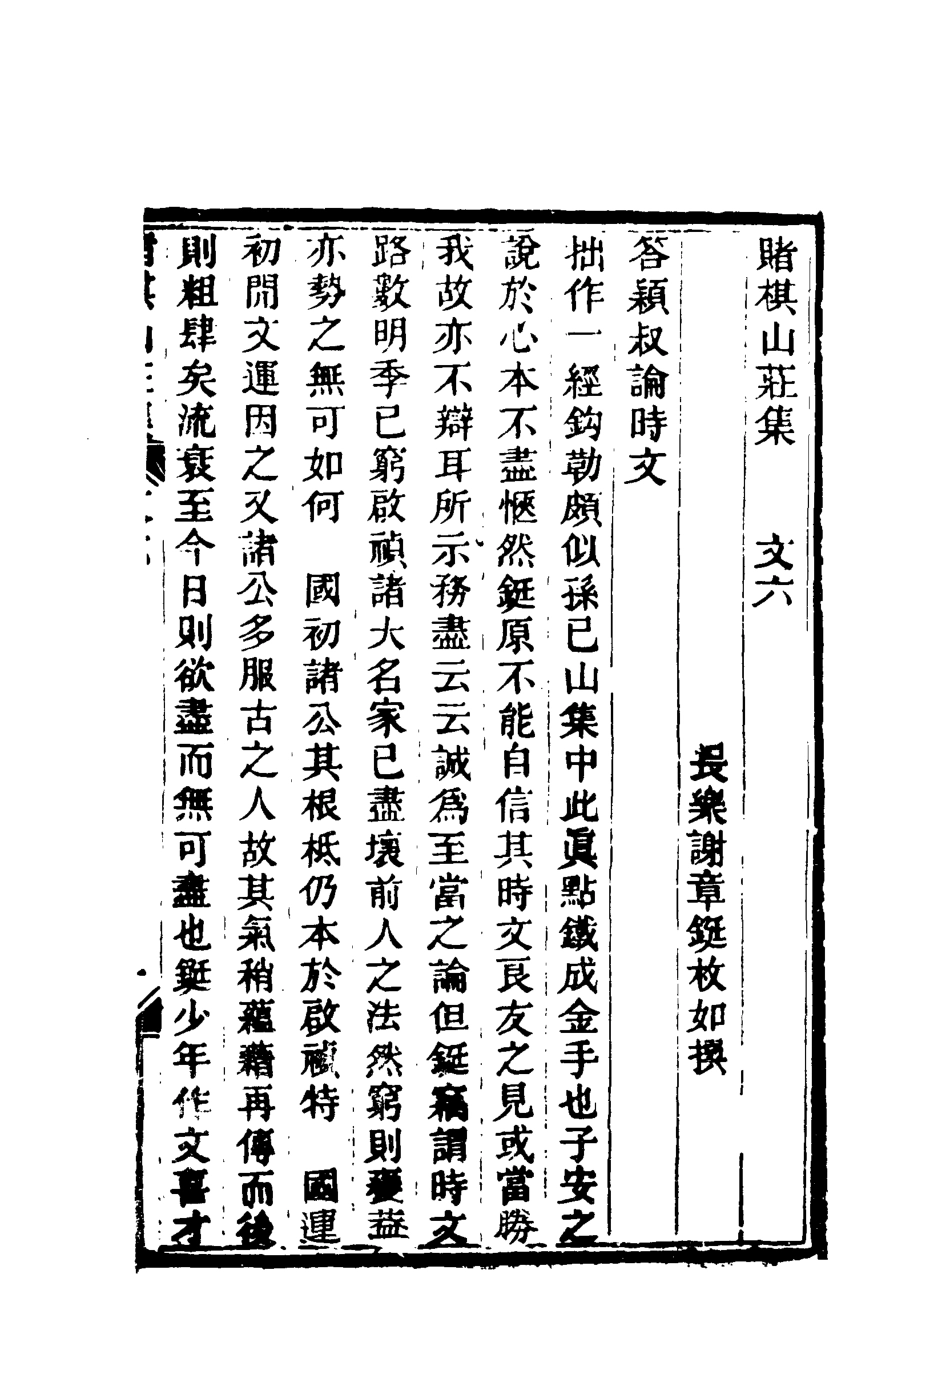 賭棋山莊集　　文六
長樂謝章鋌枚如撰
答穎叔論時文
拙作一經鈎勒頗似孫已山集中此眞點鐵成金手也子安之
說於心本不盡愜然鋌原不能自信其時文良友之見或當勝
我故亦不辯耳所示務盡云云誠爲至當之論但鋌竊謂時文
路數明季已窮啟禎諸大名家已盡壞前人之法然窮則變葢
亦勢之無可如何　國初諸公其根柢仍本於啟禎特　國運
初開文運因之又諸公多服古之人故其氣稍蘊藉再傳而後
則粗肆矣流衰至今日則欲盡而無可盡也鋌少年作文喜才